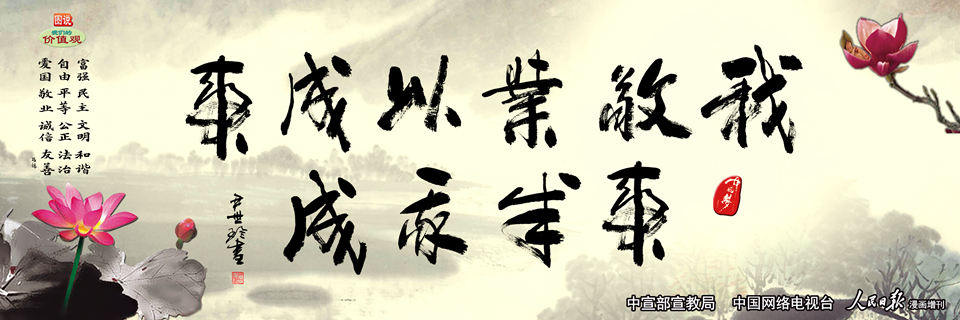 图说
我们的
价值观
富强 民主 文明 和谐
自由 平等 公正 法治
爱国 敬业 诚信 友善
我敬業以成事
事亦成
中国梦
中宣部宣教局 中国网络电视台 人民日报 漫画增刊